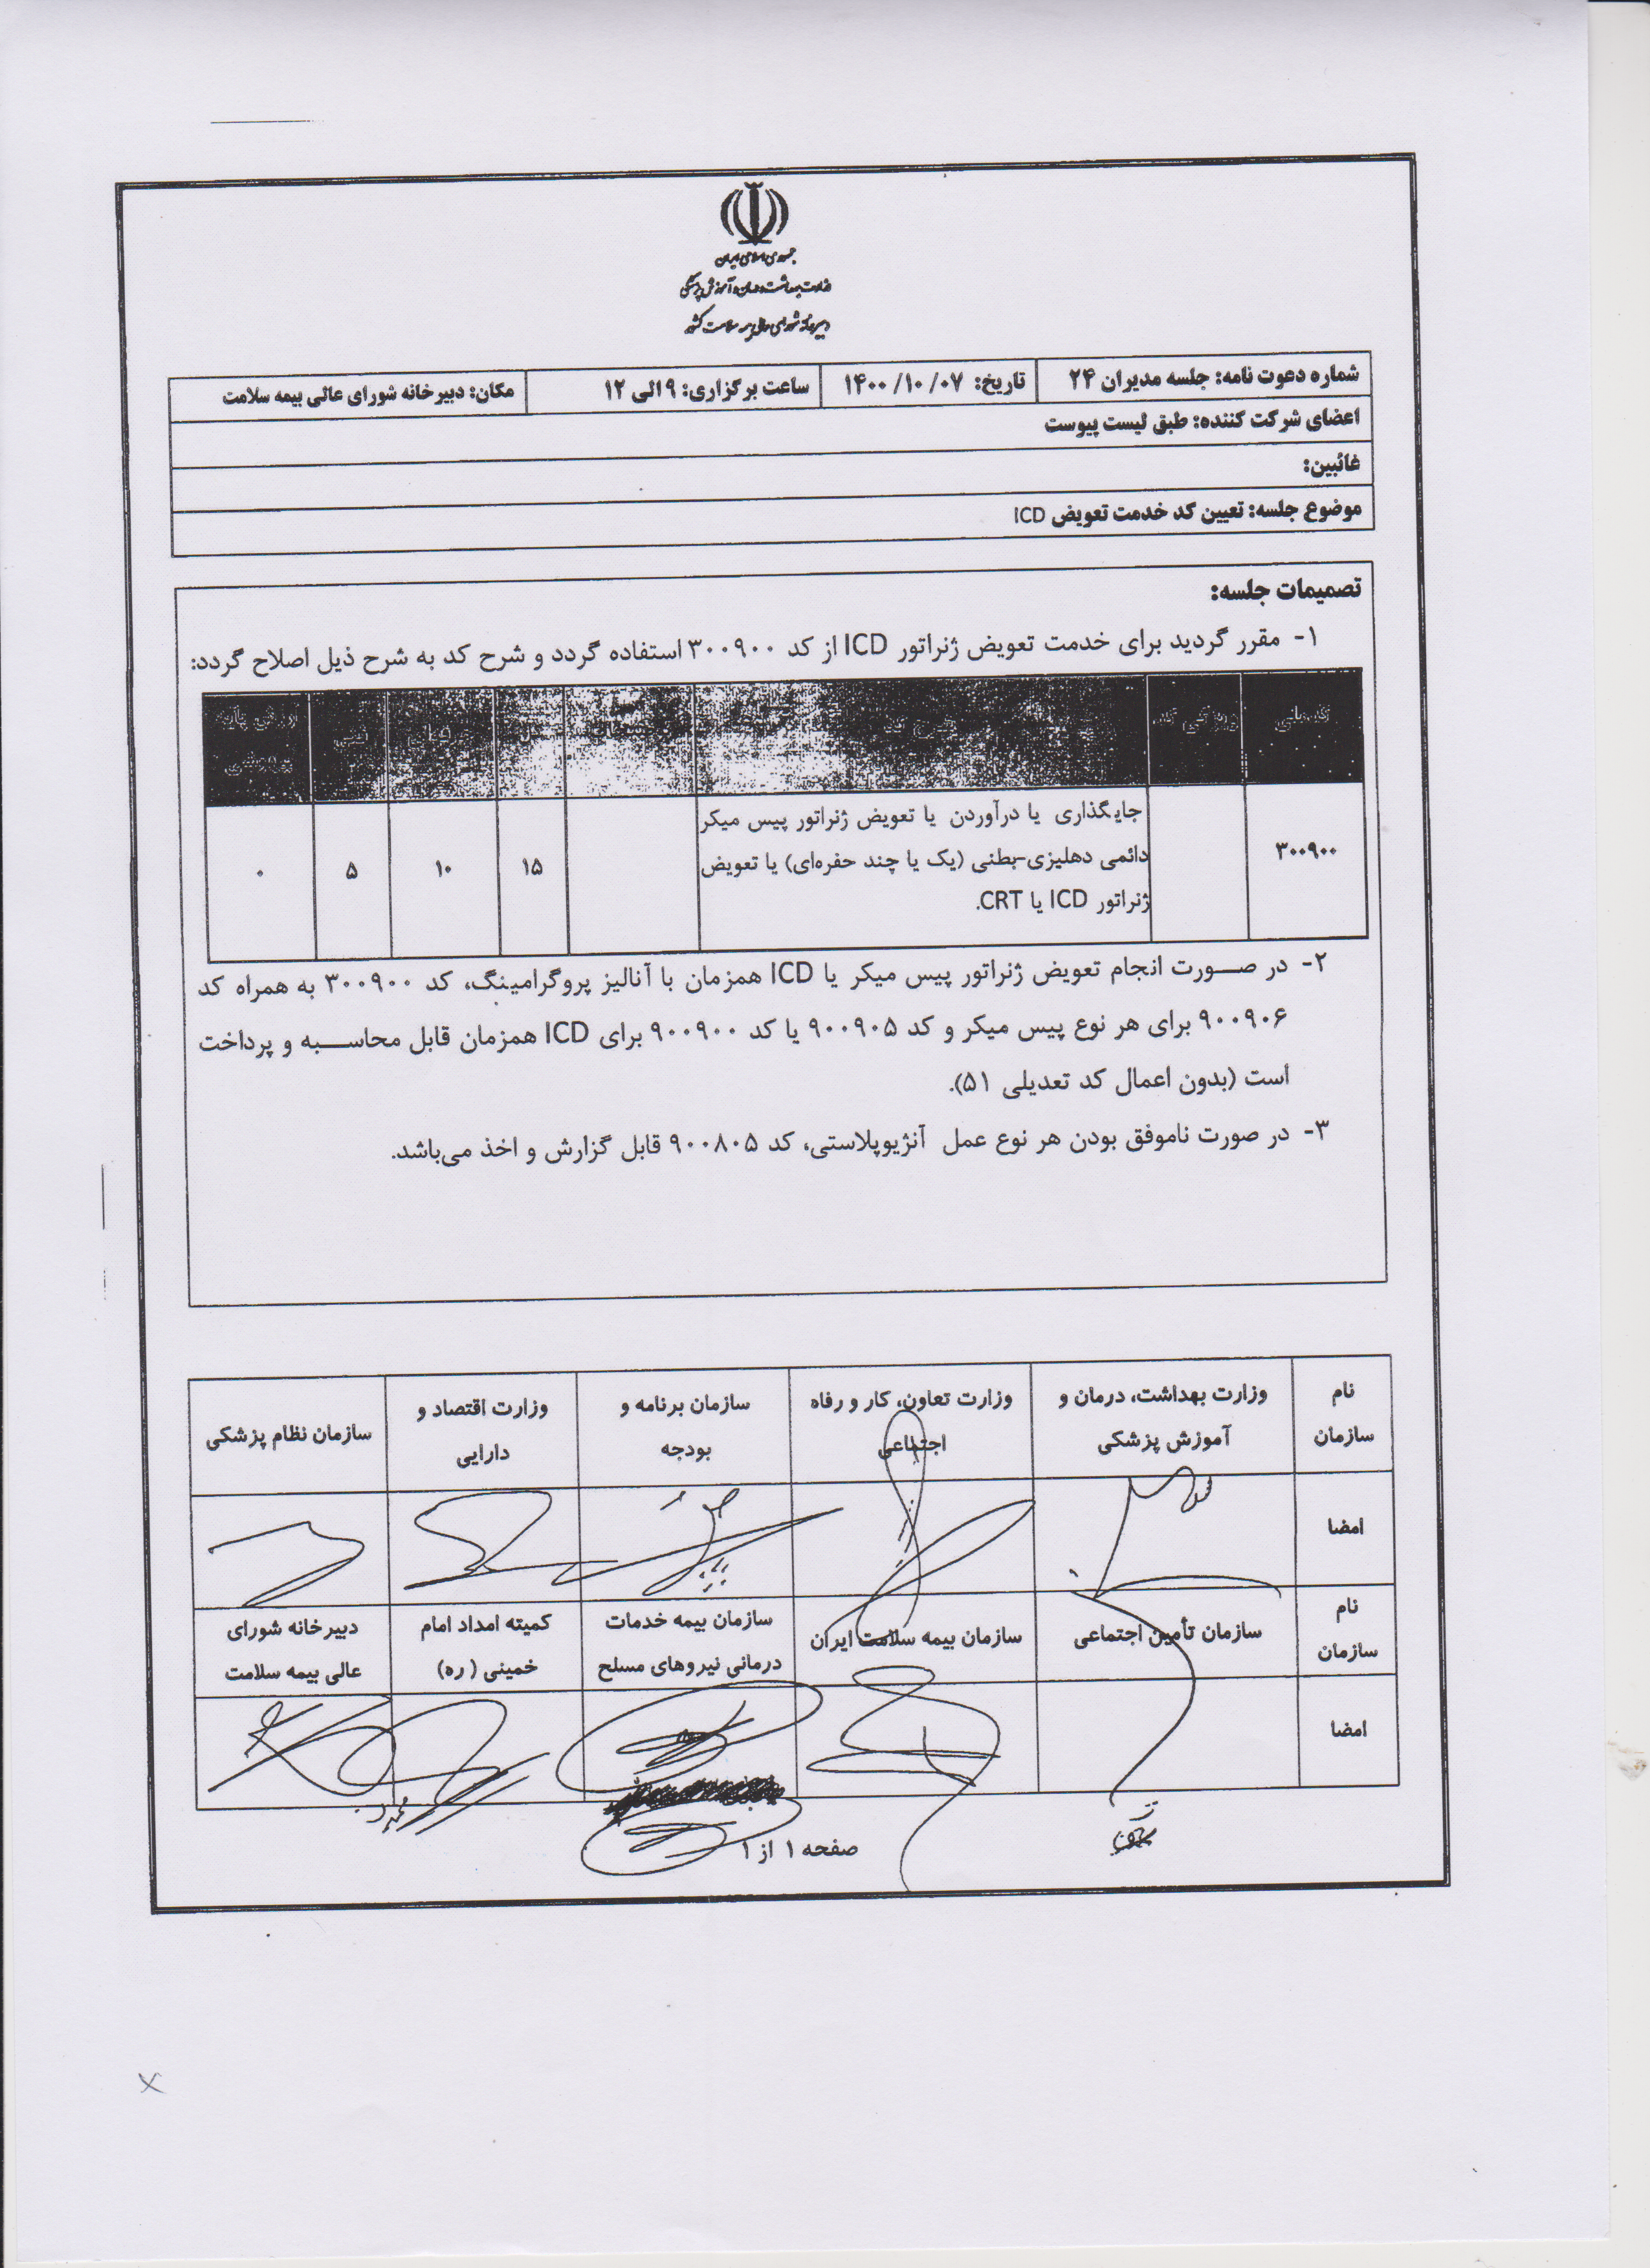 جمهوری اسلامی ایران
وزارت بهداشت، درمان و آموزش پزشکی
دبیرخانه شورای عالی بیمه سلامت کشور
شماره دعوت نامه: جلسه مدیران ۲۴ تاریخ: ۱۴۰۰/۱۰/۰۷ ساعت برگزاری: ۹ الی ۱۲ مکان: دبیرخانه شورای عالی بیمه سلامت
اعضای شرکت کننده: طبق لیست پیوست
غائبین:
موضوع جلسه: تعیین کد خدمت تعویض ICD
تصمیمات جلسه:
۱- مقرر گردید برای خدمت تعویض ژنراتور ICD از کد ۳۰۰۹۰۰ استفاده گردد و شرح کد به شرح ذیل اصلاح گردد:
کد ملی ویژگی کد شرح کد کل حرفه‌ای فنی ارزش پایه
بیهوشی
جایگذاری یا درآوردن یا تعویض ژنراتور پیس میکر
۳۰۰۹۰۰ دائمی دهلیزی-بطنی (یک یا چند حفره‌ای) یا تعویض ۱۵ ۱۰ ۵ ۰
ژنراتور ICD یا CRT.
۲- در صورت انجام تعویض ژنراتور پیس میکر یا ICD همزمان با آنالیز پروگرامینگ، کد ۳۰۰۹۰۰ به همراه کد
۹۰۰۹۰۶ برای هر نوع پیس میکر و کد ۹۰۰۹۰۵ یا کد ۹۰۰۹۰۰ برای ICD همزمان قابل محاسبه و پرداخت
است (بدون اعمال کد تعدیلی ۵۱).
۳- در صورت ناموفق بودن هر نوع عمل آنژیوپلاستی، کد ۹۰۰۸۰۵ قابل گزارش و اخذ می‌باشد.
نام وزارت بهداشت، درمان و وزارت تعاون، کار و رفاه سازمان برنامه و وزارت اقتصاد و سازمان نظام پزشکی
سازمان آموزش پزشکی اجتماعی بودجه دارایی
امضا
نام سازمان تأمین اجتماعی سازمان بیمه سلامت ایران سازمان بیمه خدمات کمیته امداد امام دبیرخانه شورای
سازمان درمانی نیروهای مسلح خمینی (ره) عالی بیمه سلامت
امضا
صفحه ۱ از ۱